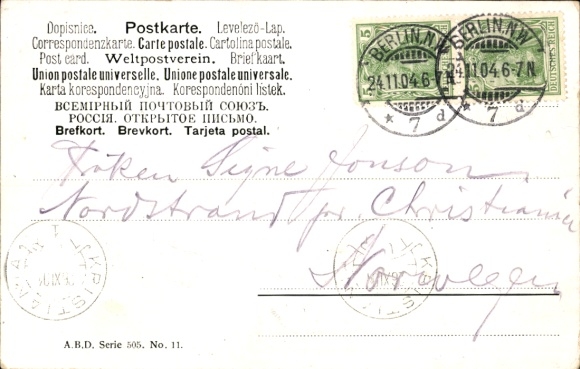 Dopisnice. Postkarte. Levelező-Lap.
Correspondenzkarte. Carte postale. Cartolina postale.
Post card. Weltpostverein. Briefkaart.
Union postale universelle. Unione postale universale.
Karta korespondencyjna. Korespondenční lístek.
ВСЕМІРНЫЙ ПОЧТОВЫЙ СОЮЗЪ.
РОССІЯ. ОТКРЫТОЕ ПИСЬМО.
Brefkort. Brevkort. Tarjeta postal.
5
BERLIN, N.W.
24.11.04.6-7N.
* 7 d
BERLIN, N.W.
24.11.04.6-7N.
* 7 d
DEUTSCHES REICH
Frøken Signe Jonson
Nordstrand pr. Christiania
Norwegen
KRISTIANIA
KRISTIANIA
A.B.D. Serie 505. No. 11.